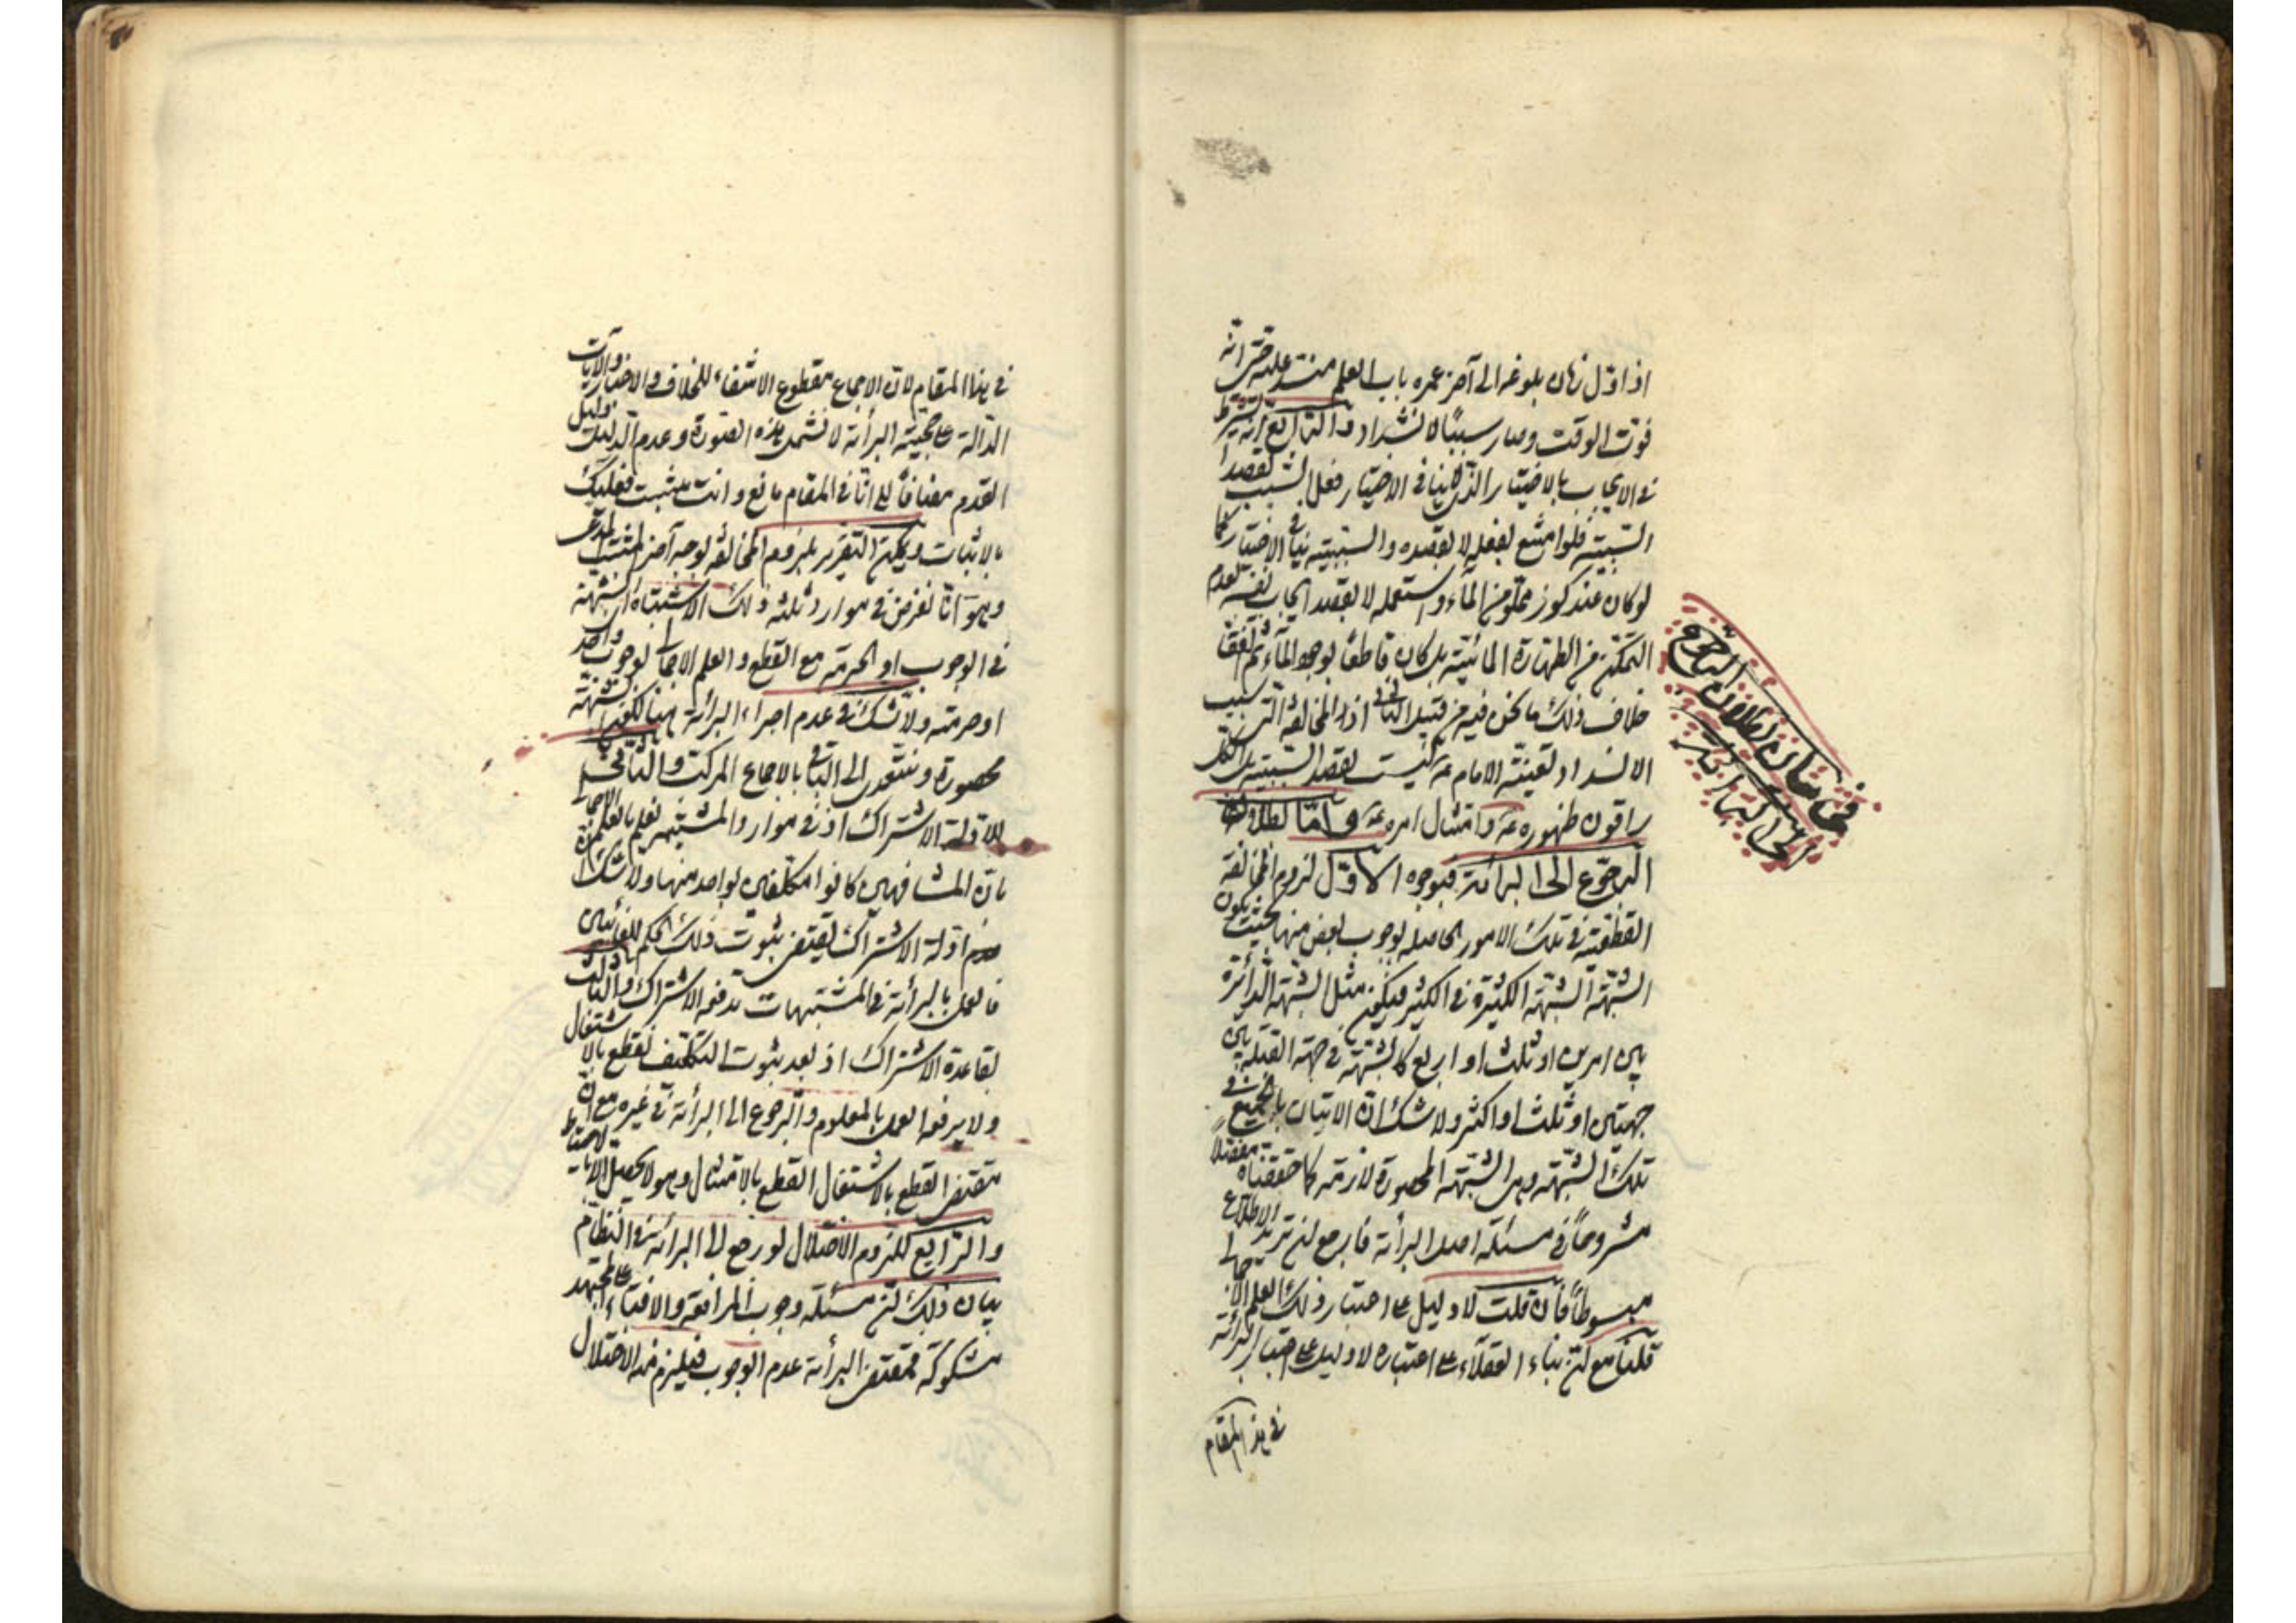 اذ اوّل زمان بلوغه الى آخر عمره باب العلم منسد عليه حتى انّه
فوت الوقت وصار سببًا لانسداد والثالث انّه يشترط
في الايجاب بالاختيار الذى لاينافى الاختيار فعل السبب بقصد
السّببيّة فلو امتنع لفعله لا بقصده والسّببيّة ينافى الاختيار كما
لو كان عنده كوز مملوّ من الماء واستعمله لا بقصد ايجاب نفسه لعدم
التمكّن من الطهارة المائيّة بل كان قاطعًا لوجود الماء ثم اتفق
خلاف ذلك ما نحن فيه من قبيل الثانى اذ المخالفة التى سبب
الانسداد لغيبة الامام ع ليست بقصد السّببيّة بل الكلّ
راقون ظهوره ع وامتثال امره ع وامّا بطلان
الرجوع الى البرائة فبوجوه الاوّل لزوم المخالفة
القطعيّة في تلك الامور الحاصلة بوجوب بعض منها بحيث يكون
الشبهة الشبهة الكثيرة في الكثير فيكون مثل الشبهة الدائرة
بين امرين او ثلث او اربع كالشبهة في جهة القبلة بين
جهتين او ثلث او اكثر ولا شك انّ الاتيان بالجميع في
تلك الشّبهة وهى الشبهة المحصورة لازمة كما حققناه مفصّلاً
مشروحًا في مسئلة اصل البرأئة فارجع ان تريد الاطلاع
مبسوطًا فان قلت لا دليل على اعتبار ذلك العلم الاجمالى
قلنا مع انّ بناء العقلاء على اعتباره لا دليل على اعتبار البرائة
في هذا المقام
فى بيان بطلان الرجوع
الى البرائة
في هذا المقام لانّ الاجماع مقطوع الانتفاء للخلاف والاخبار والآيات
الدّالة على حجيّة البرأئة لا تشمل هذه الصّورة وعدم الدليل دليل
العدم مضافًا الى انّا في المقام مانع وانت مثبت فعليك
بالاثبات ويمكن التقرير بلزوم المخالفة لوجه آخر لمثبت المدّعى
وهو انّا نفرض في موارد ثلثه ذلك الاشتباه اى الشبهة
في الوجوب او الحرمة مع القطع والعلم الاجمالى بوجوب واحد
او حرمته ولا شك في عدم اجراء البرائة هنا لكونها شبهة
محصورة ونتعدى الى الباقى بالاجماع المركب والثانى
للادلة الاشتراك اذ في موارد المشتبهة نعلم بالعلم الاجمالى
بانّ المشافهين كانوا مكلّفين بواحد منها ولا شك انّ
ادلة الاشتراك يقتضى ثبوت ذلك الحكم للغائبين
فالعمل بالبرأئة في المشتبهات تدفعه الاشتراك والثالث
لقاعدة الاشتراك اذ بعد ثبوت التكليف نقطع بالاشتغال
ولا يرفعه العمل بالمعلوم والرجوع الى البرأئة في غيره مع انّ
مقتضى القطع بالاشتغال القطع بالامتثال وهو لا يحصل الا بالاحتياط
والرّابع للزوم الاختلال لو رجع الى البرائة في النظام
بيان ذلك انّ مسئلة وجوب المرافعة والافتاء على المجتهد
مشكوكة فمقتضى البرأئة عدم الوجوب فيلزم منه الاختلال